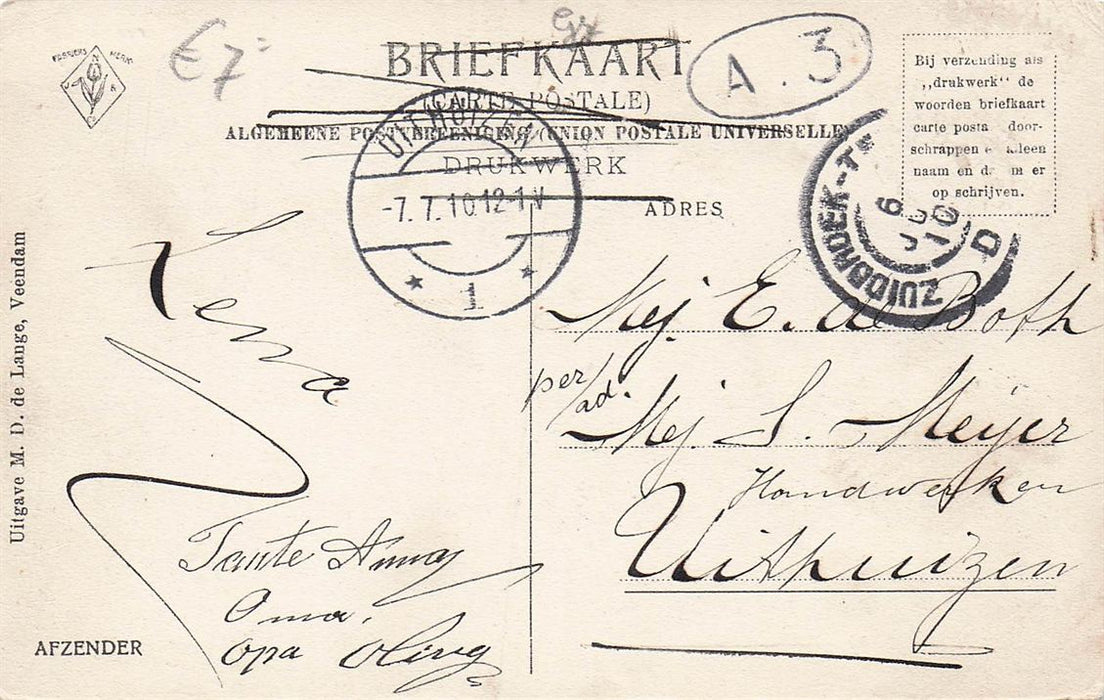 FABRIEKS MERK
€ 7
BRIEFKAART
(CARTE POSTALE)
ALGEMEENE POSTVEREENIGING (UNION POSTALE UNIVERSELLE)
DRUKWERK
ADRES
A. 3
Bij verzending als
„drukwerk“ de
woorden briefkaart
carte posta door-
schrappen e alleen
naam en d m er
op schrijven.
UITHUIZEN
-7.7.10.12-1 V
1
ZUIDBROEK-T
6
10
D
Lena
Tante Anna
Oma,
Opa
Mej. E. de Both
per/ad.
Mej S. Meijer
Handwerken
Uithuizen
AFZENDER
Uitgave M. D. de Lange, Veendam